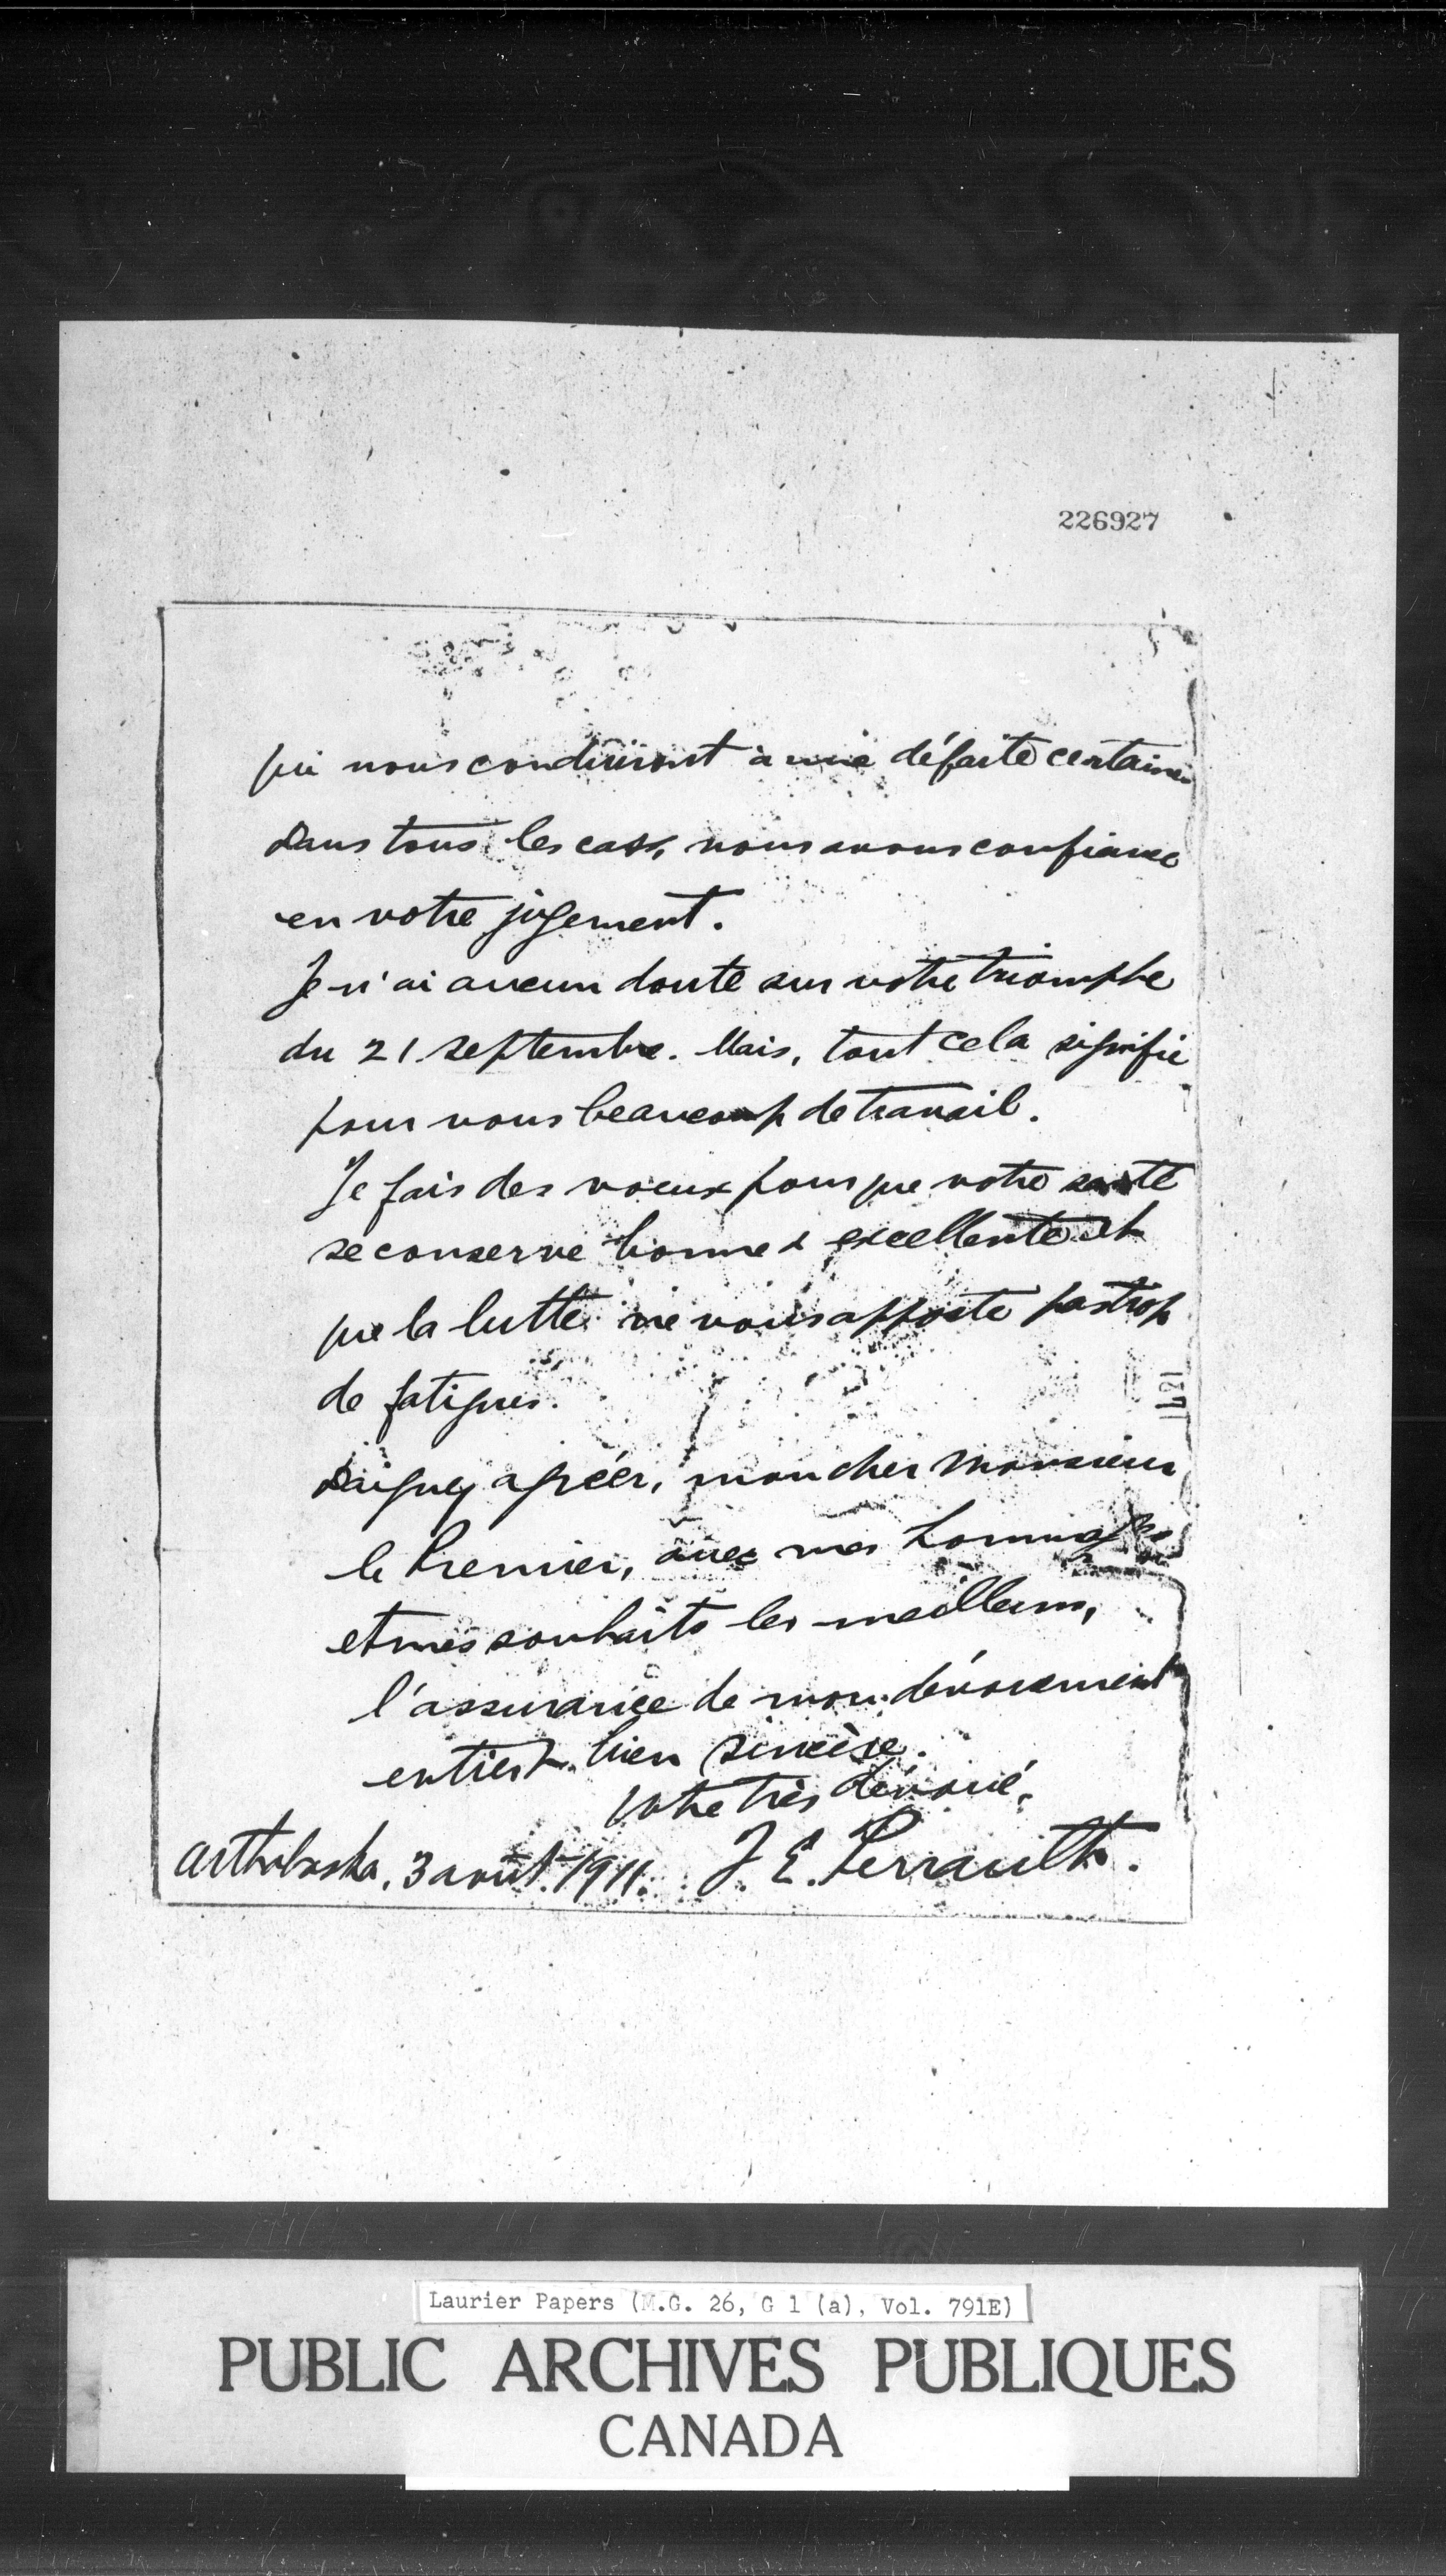 226927
qui nous conduiront à une défaite certaine
Dans tous les cas, nous avons confiance
en votre jugement.
Je n'ai aucun doute sur votre triomphe
du 21 septembre. Mais, tout cela signifie
pour vous beaucoup de travail.
Je fais des voeux pour que votre santé
se conserve bonne & excellente et
que la lutte ne vous apporte pas trop
de fatigues.
Daignez agréer, mon cher Monsieur
le Premier, avec mes hommages
et mes souhaits les meilleurs,
l'assurance de mon dévouement
entier & bien sincère.
Votre très dévoué,
Arthabaska, 3 août 1911. J. E. Perrault.
Laurier Papers (M.G. 26, G 1 (a), Vol. 791E)
PUBLIC ARCHIVES PUBLIQUES
CANADA